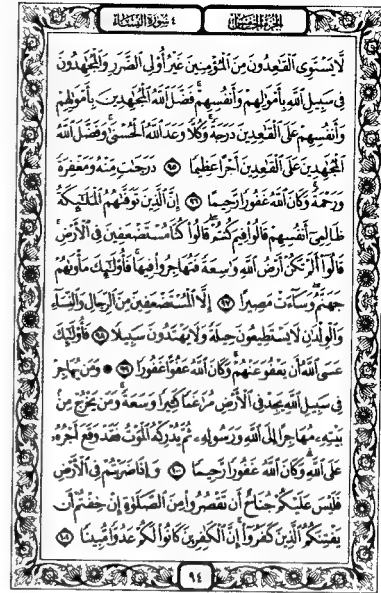 الجزء الخامس
٤ سورة النساء
لَّا يَسْتَوِى ٱلْقَٰعِدُونَ مِنَ ٱلْمُؤْمِنِينَ غَيْرُ أُو۟لِى ٱلضَّرَرِ وَٱلْمُجَٰهِدُونَ
فِى سَبِيلِ ٱللَّهِ بِأَمْوَٰلِهِمْ وَأَنفُسِهِمْ ۚ فَضَّلَ ٱللَّهُ ٱلْمُجَٰهِدِينَ بِأَمْوَٰلِهِمْ
وَأَنفُسِهِمْ عَلَى ٱلْقَٰعِدِينَ دَرَجَةً ۚ وَكُلًّا وَعَدَ ٱللَّهُ ٱلْحُسْنَىٰ ۚ وَفَضَّلَ ٱللَّهُ
ٱلْمُجَٰهِدِينَ عَلَى ٱلْقَٰعِدِينَ أَجْرًا عَظِيمًا ٩٥ دَرَجَٰتٍ مِّنْهُ وَمَغْفِرَةً
وَرَحْمَةً ۚ وَكَانَ ٱللَّهُ غَفُورًا رَّحِيمًا ٩٦ إِنَّ ٱلَّذِينَ تَوَفَّىٰهُمُ ٱلْمَلَٰٓئِكَةُ
ظَالِمِىٓ أَنفُسِهِمْ قَالُوا۟ فِيمَ كُنتُمْ ۖ قَالُوا۟ كُنَّا مُسْتَضْعَفِينَ فِى ٱلْأَرْضِ ۚ
قَالُوٓا۟ أَلَمْ تَكُنْ أَرْضُ ٱللَّهِ وَٰسِعَةً فَتُهَاجِرُوا۟ فِيهَا ۚ فَأُو۟لَٰٓئِكَ مَأْوَىٰهُمْ
جَهَنَّمُ ۖ وَسَآءَتْ مَصِيرًا ٩٧ إِلَّا ٱلْمُسْتَضْعَفِينَ مِنَ ٱلرِّجَالِ وَٱلنِّسَآءِ
وَٱلْوِلْدَٰنِ لَا يَسْتَطِيعُونَ حِيلَةً وَلَا يَهْتَدُونَ سَبِيلًا ٩٨ فَأُو۟لَٰٓئِكَ
عَسَى ٱللَّهُ أَن يَعْفُوَ عَنْهُمْ ۚ وَكَانَ ٱللَّهُ عَفُوًّا غَفُورًا ٩٩ ۞ وَمَن يُهَاجِرْ
فِى سَبِيلِ ٱللَّهِ يَجِدْ فِى ٱلْأَرْضِ مُرَٰغَمًا كَثِيرًا وَسَعَةً ۚ وَمَن يَخْرُجْ مِنۢ
بَيْتِهِۦ مُهَاجِرًا إِلَى ٱللَّهِ وَرَسُولِهِۦ ثُمَّ يُدْرِكْهُ ٱلْمَوْتُ فَقَدْ وَقَعَ أَجْرُهُۥ
عَلَى ٱللَّهِ ۗ وَكَانَ ٱللَّهُ غَفُورًا رَّحِيمًا ١٠٠ وَإِذَا ضَرَبْتُمْ فِى ٱلْأَرْضِ
فَلَيْسَ عَلَيْكُمْ جُنَاحٌ أَن تَقْصُرُوا۟ مِنَ ٱلصَّلَوٰةِ إِنْ خِفْتُمْ أَن
يَفْتِنَكُمُ ٱلَّذِينَ كَفَرُوٓا۟ ۚ إِنَّ ٱلْكَٰفِرِينَ كَانُوا۟ لَكُمْ عَدُوًّا مُّبِينًا ١٠١
٩٤